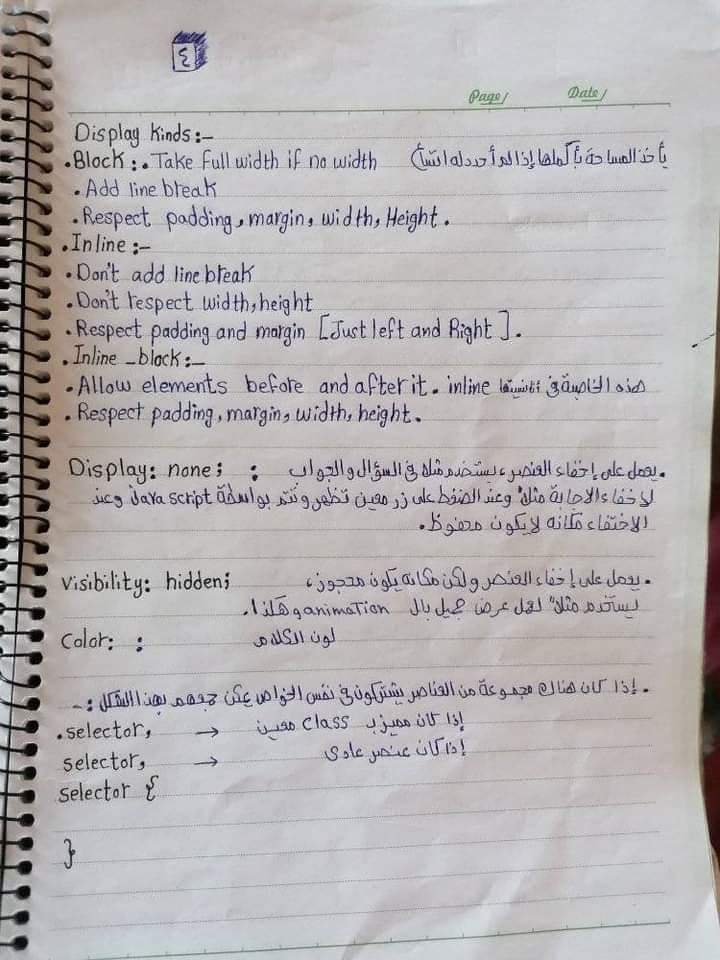 ٤
Page/ Date/
Display Kinds:-
.Block:. Take full width if no width (يأخذ المساحة بأكملها إذا لم أحدد له
. Add line break
. Respect padding, margin, width, Height.
. Inline :-
. Don't add line break
. Don't respect width, height
. Respect padding and margin [Just left and Right].
. Inline _block:-
. Allow elements before and after it. inline هذه الخاصية في
. Respect padding, margin, width, height.
Display: none; : .يعمل على إخفاء العنصر، يستخدم مثلا في السؤال والجواب
لإخفاء الإجابة مثلاً وعند الضغط على زر معين تظهر وتتم بواسطة Java script وعند
الاختفاء مكانه لا يكون محفوظ.
visibility: hidden; .يعمل على إخفاء العنصر ولكن مكانه يكون محجوز،
يستخدم مثلاً لعمل عرض جميل بال animation وهكذا.
Color: : لون الكلام
. إذا كان هناك مجموعة من العناصر يشتركون في نفس الخواص يمكن جمعهم بهذا الشكل :-
.selector, → إذا كان مميز ب class معين
selector, → إذا كان عنصر عادى
selector {
}